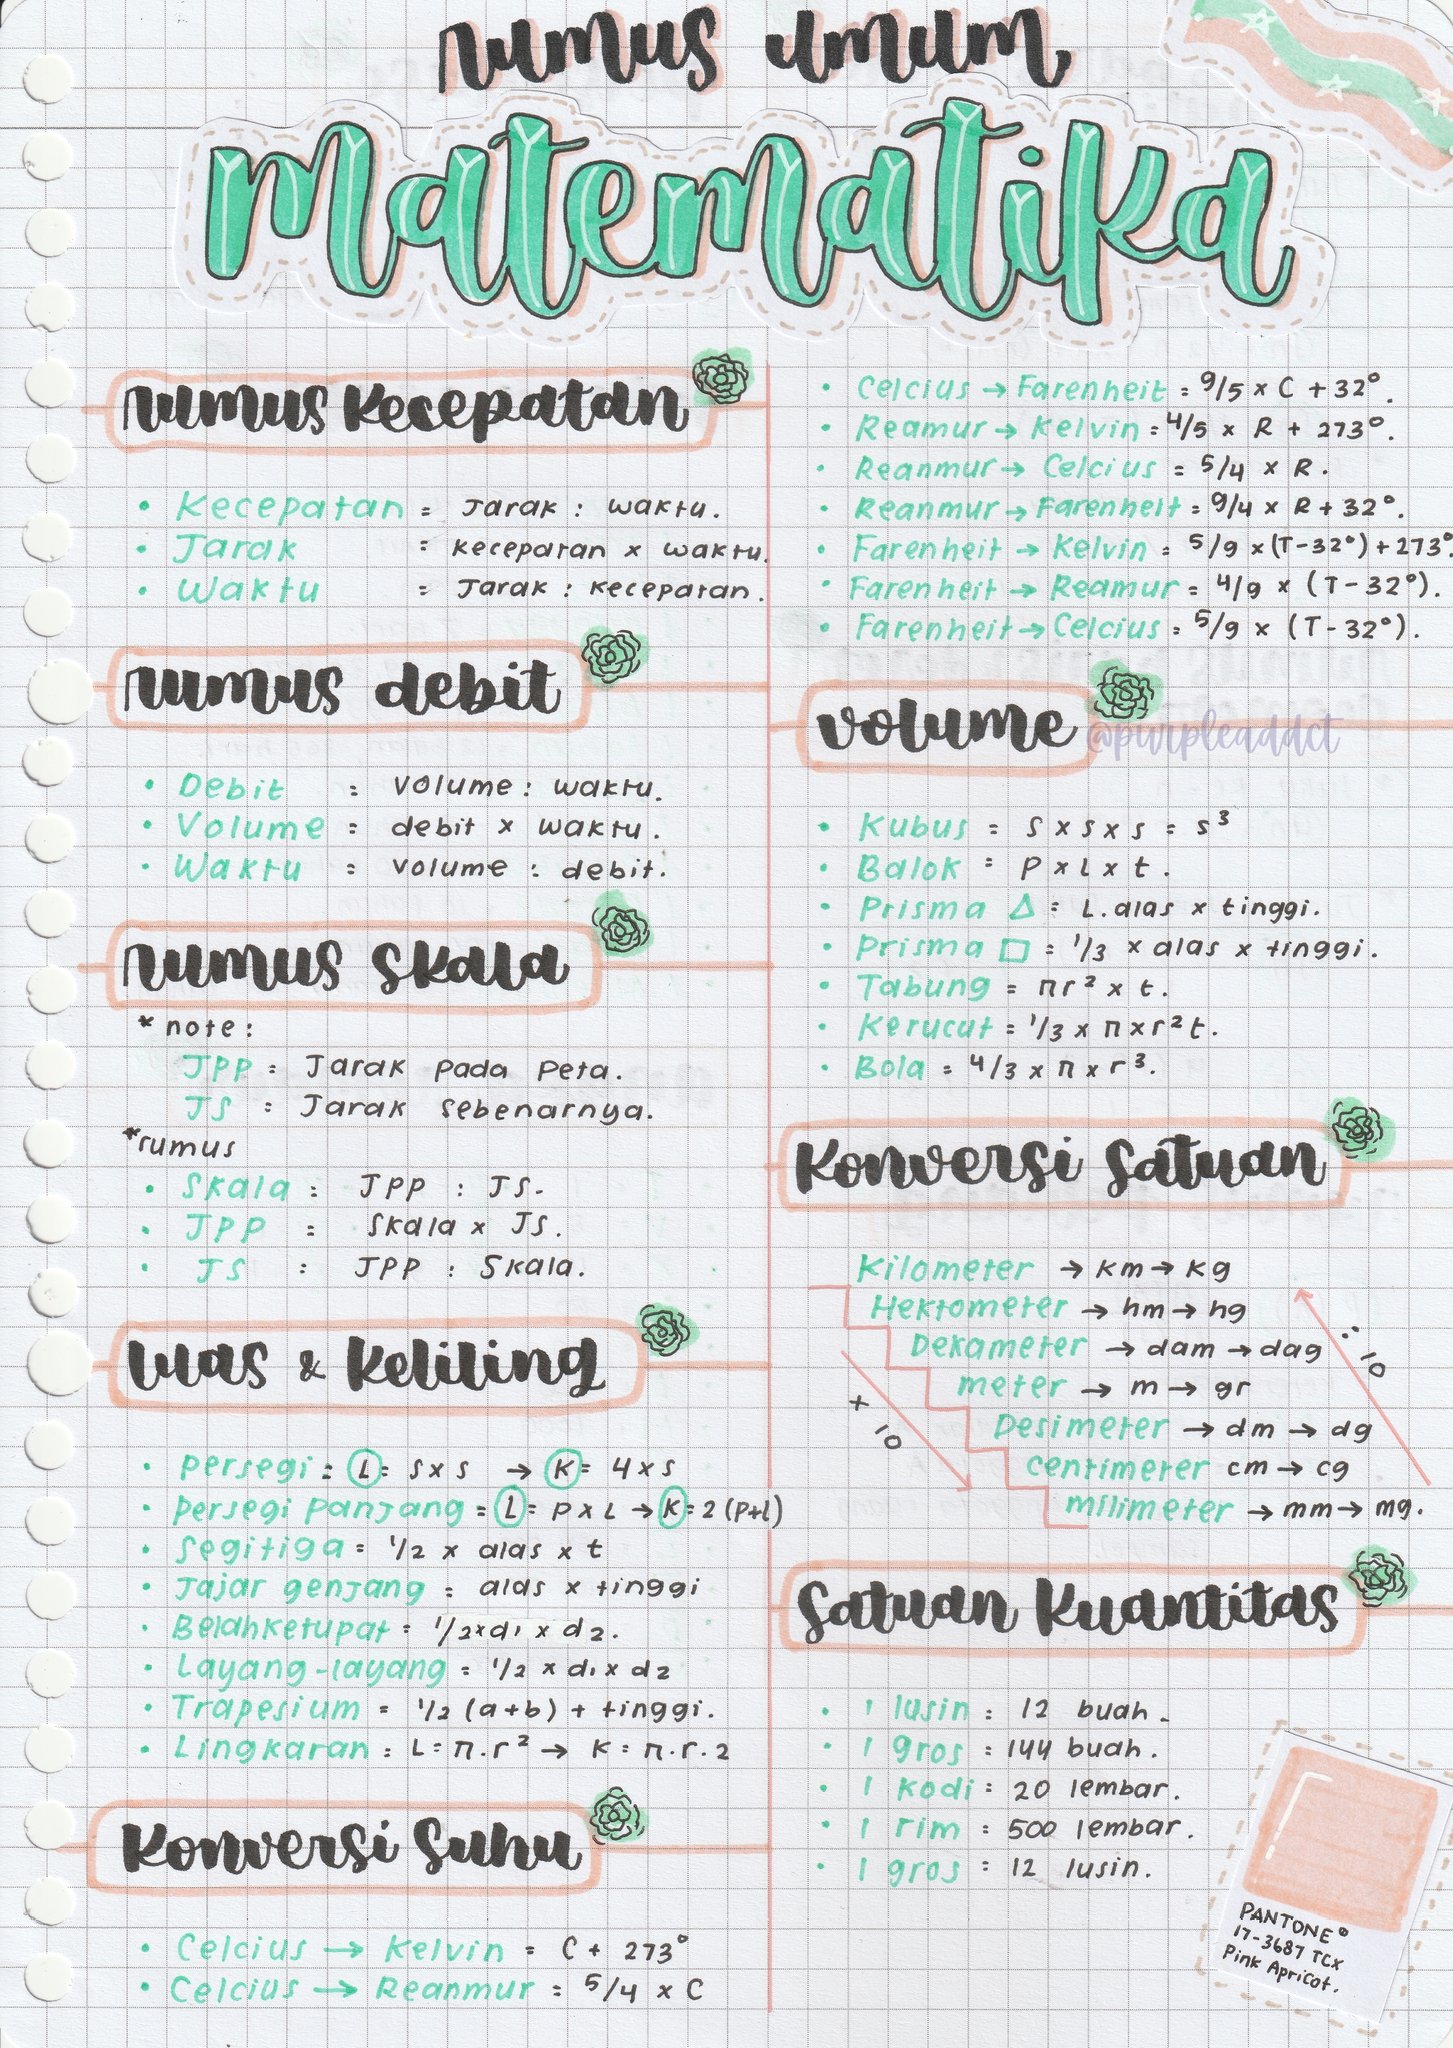 rumus umum
matematika
rumus kecepatan
• Kecepatan = Jarak : waktu.
• Jarak = kecepatan x waktu.
• Waktu = Jarak : kecepatan.
rumus debit
• Debit = volume : waktu.
• Volume = debit x waktu.
• Waktu = volume : debit.
rumus skala
* note :
JPP = Jarak pada peta.
JS = Jarak sebenarnya.
*rumus
• Skala = JPP : JS.
• JPP = Skala x JS.
• JS = JPP : Skala.
luas & keliling
• Persegi = L = s x s → K = 4 x s
• Persegi panjang = L = P x L → K = 2 (P+l)
• Segitiga = 1/2 x alas x t
• Jajar genjang = alas x tinggi
• Belahketupat = 1/2 x d1 x d2.
• Layang-layang = 1/2 x d1 x d2
• Trapesium = 1/2 (a+b) + tinggi.
• Lingkaran = L = π.r² → K = π.r.2
konversi suhu
• Celcius → Kelvin = C + 273°
• Celcius → Reanmur = 5/4 x C
• Celcius → Farenheit = 9/5 x C + 32°.
• Reamur → Kelvin = 4/5 x R + 273°.
• Reanmur → Celcius = 5/4 x R.
• Reanmur → Farenheit = 9/4 x R + 32°.
• Farenheit → Kelvin = 5/9 x (T-32°) + 273°.
• Farenheit → Reamur = 4/9 x (T-32°).
• Farenheit → Celcius = 5/9 x (T-32°).
volume
@purpleaddct
• Kubus = s x s x s = s³
• Balok = P x L x t.
• Prisma △ = L.alas x tinggi.
• Prisma □ = 1/3 x alas x tinggi.
• Tabung = πr² x t.
• Kerucut = 1/3 x π x r² t.
• Bola = 4/3 x π x r³.
konversi satuan
Kilometer → km → kg
Hektometer → hm → hg
Dekameter → dam → dag
meter → m → gr
Desimeter → dm → dg
centimeter cm → cg
milimeter → mm → mg.
+ 10
: 10
satuan kuantitas
• 1 lusin = 12 buah.
• 1 gros = 144 buah.
• 1 kodi = 20 lembar.
• 1 rim = 500 lembar.
• 1 gros = 12 lusin.
PANTONE®
17-3687 TCX
Pink Apricot.